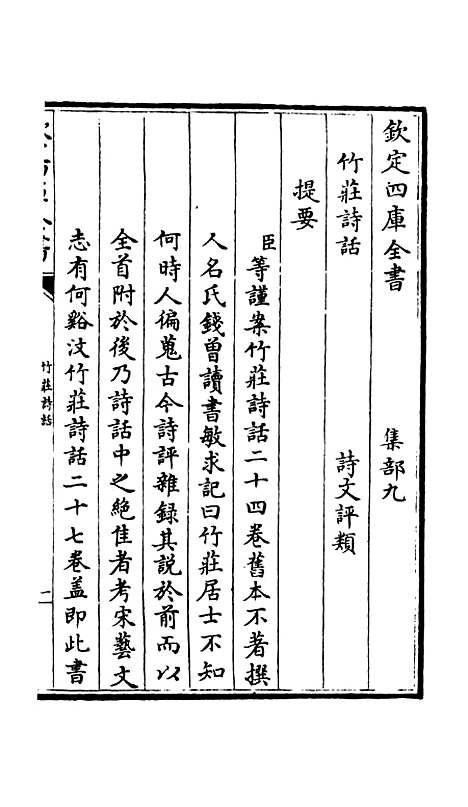 欽定四庫全書　集部九
竹莊詩話　詩文評類
提要
臣等謹案竹莊詩話二十四卷舊本不著撰
人名氏錢曾讀書敏求記曰竹莊居士不知
何時人徧蒐古今詩評雜録其說於前而以
全首附於後乃詩話中之絶佳者考宋藝文
志有何谿汶竹莊詩話二十七卷盖即此書
竹莊詩話
一